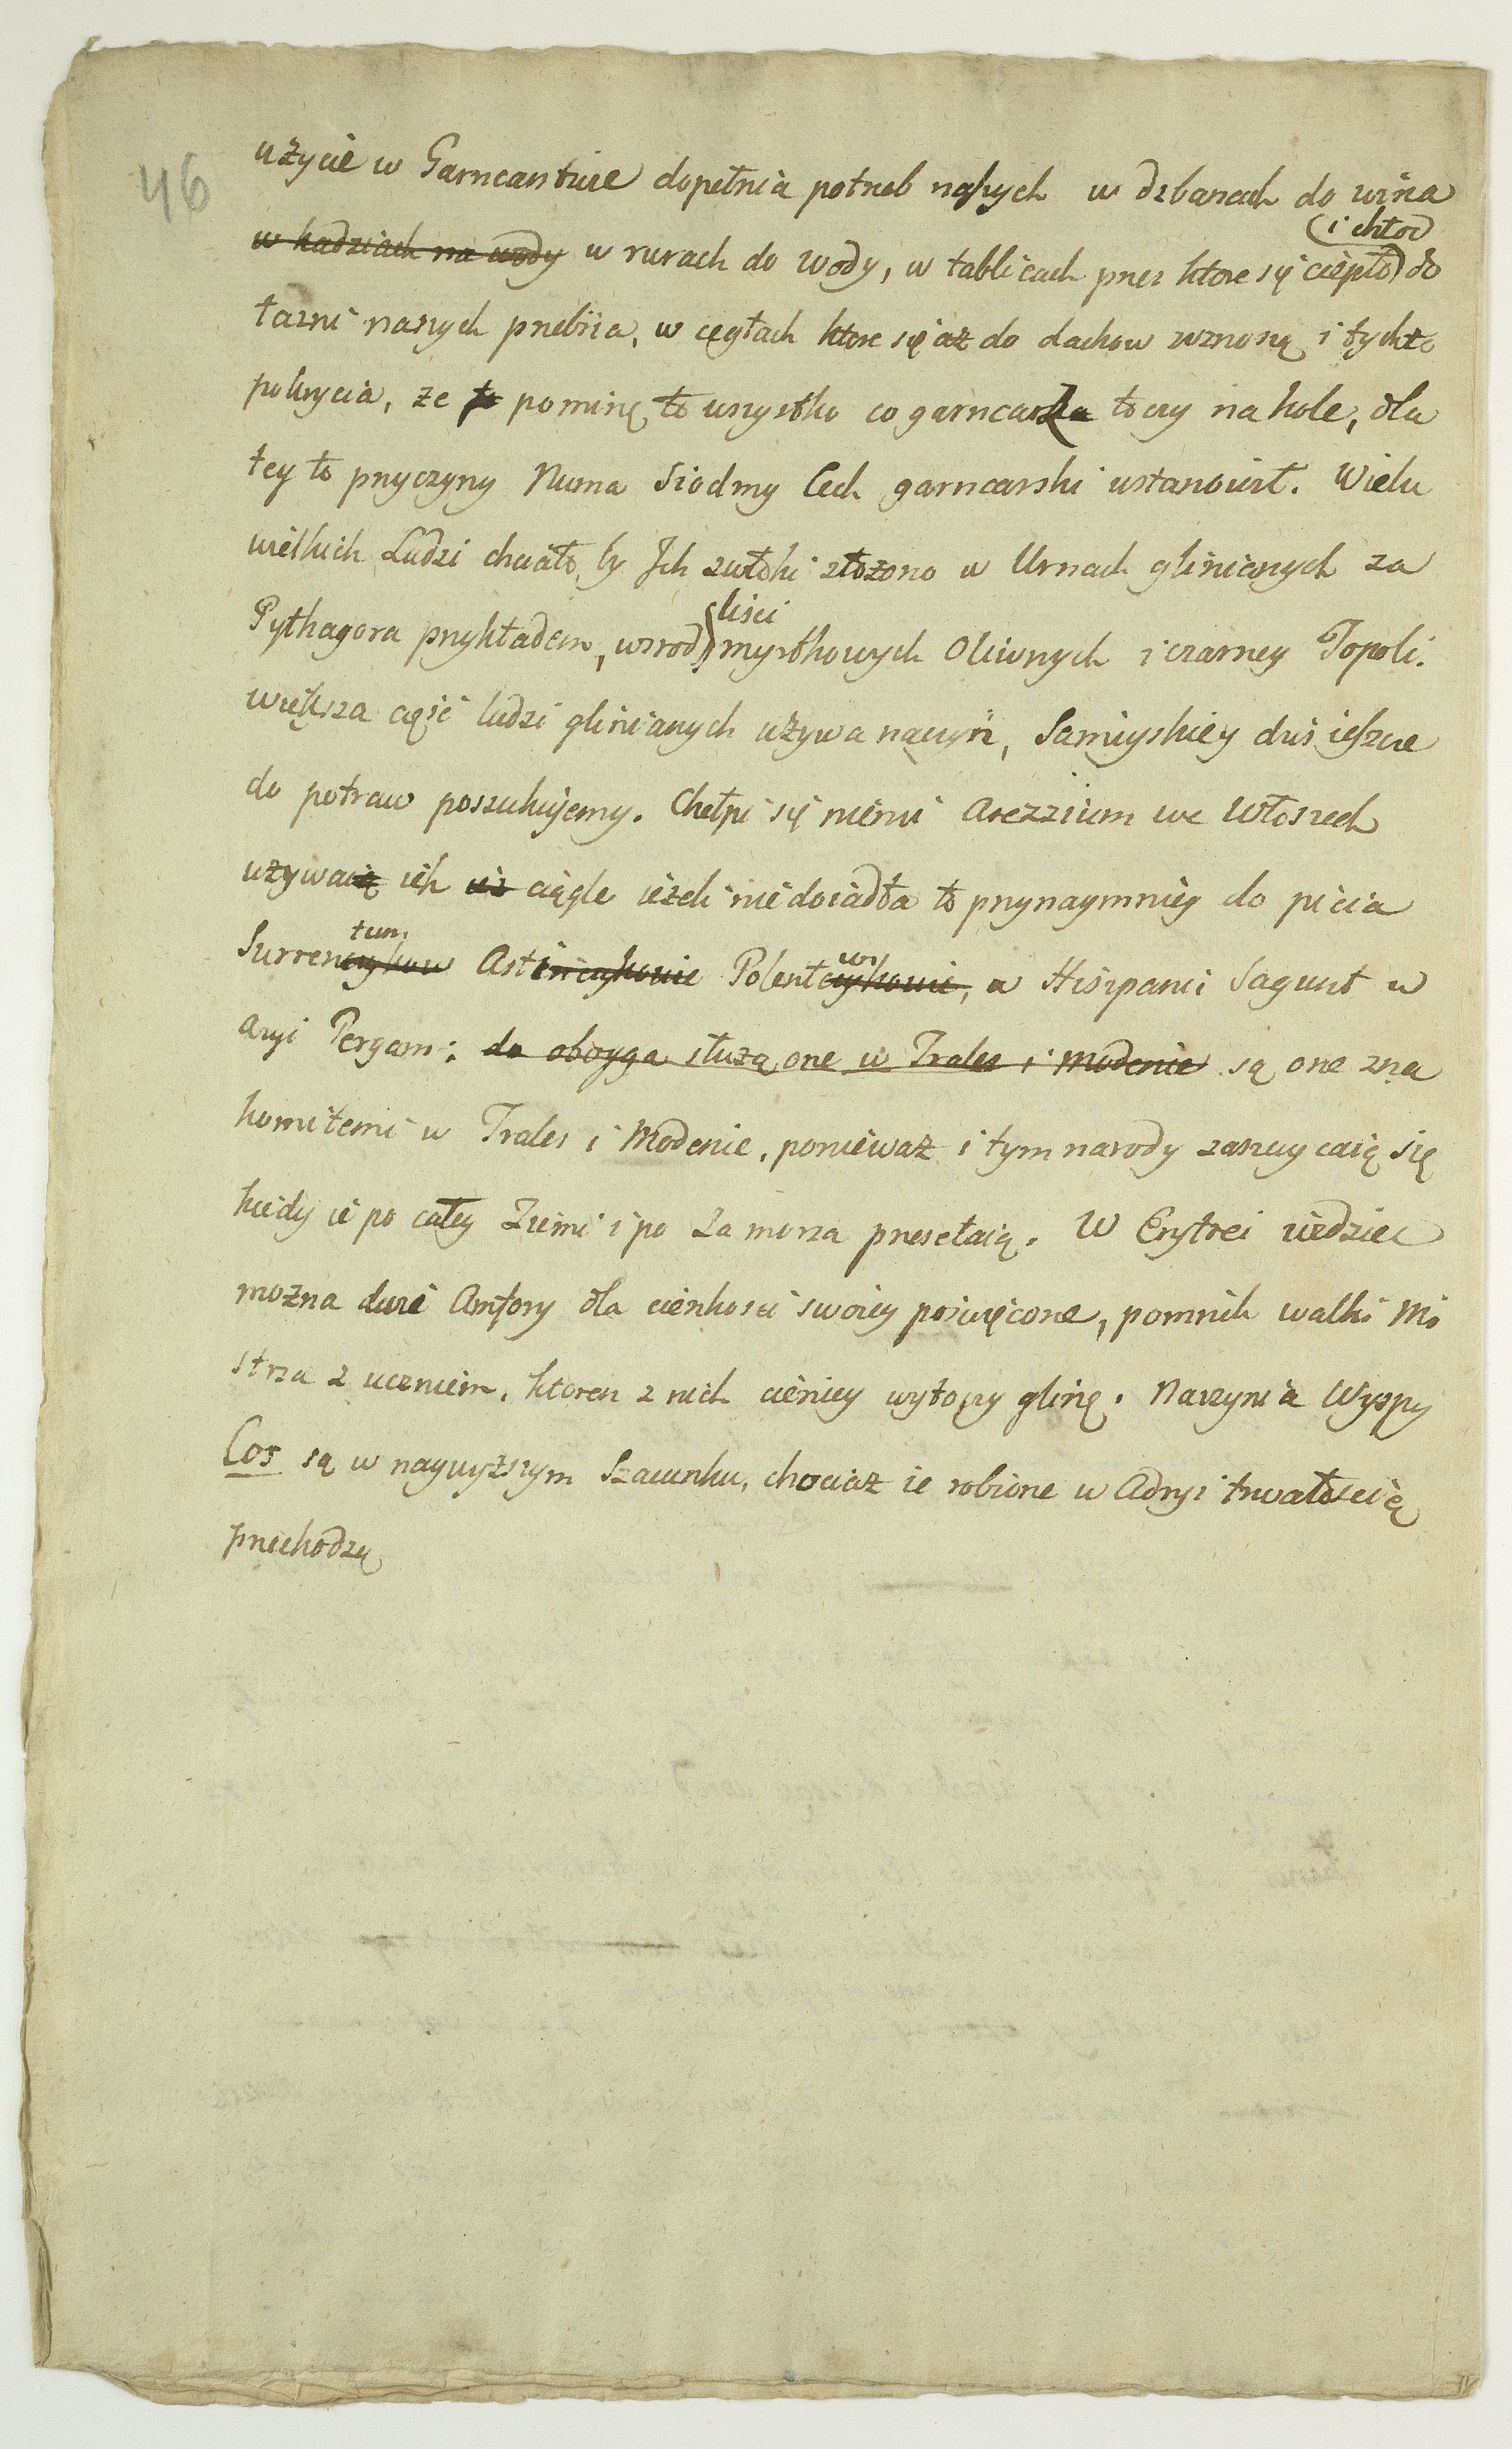 46
użycie w Garncarstwie dopełnia potrzeb naszych w dzbancach do wina
w kadziach na wody w rurach do wody, w tablicach przez ktore się ciepło i chłod do
łazni naszych przebiia, w cegłach ktore się aż do dachow wznoszą i tychże
pokrycia, że to pominę to wszystko co garncarz toczy na kole, dla
tey to przyczyny Numa Siodmy Cech garncarski ustanowił. Wielu
wielkich Ludzi chciało by Jch zwłoki złożono w Urnach glinianych za
Pythagora przykładem, wsrod liści myrtkowych Oliwnych i czarney Topoli.
większa część ludzi glinianych używa naczyń, Samiyskiey dziś ieszcze
do potraw poszukujemy. Chełpi się niemi Arezzium we Włoszech
używaią ich iuż ciągle ieżeli nie do iadła to przynaymniey do picia
Surrentum Ast Polent w, w Hiszpanii Sagunt w
Azyi Pergam: do oboyga służą one w Trales i Modenie są one zna
komitemi w Trales i Modenie, ponieważ i tym narody zaszczycaią się
kiedy ie po całey Ziemi i po za morza przesełaią. W Erytrei widziec
można dwie Amfory dla cienkosci swoiey poswięcone, pomnik walki Mi
strza z uczniem, ktoren z nich cieniey wytoczy glinę. Naczynia Wyspy
Cos są w naywyższym szacunku, chociaż ie robione w Adryi trwałoscią
przechodzą